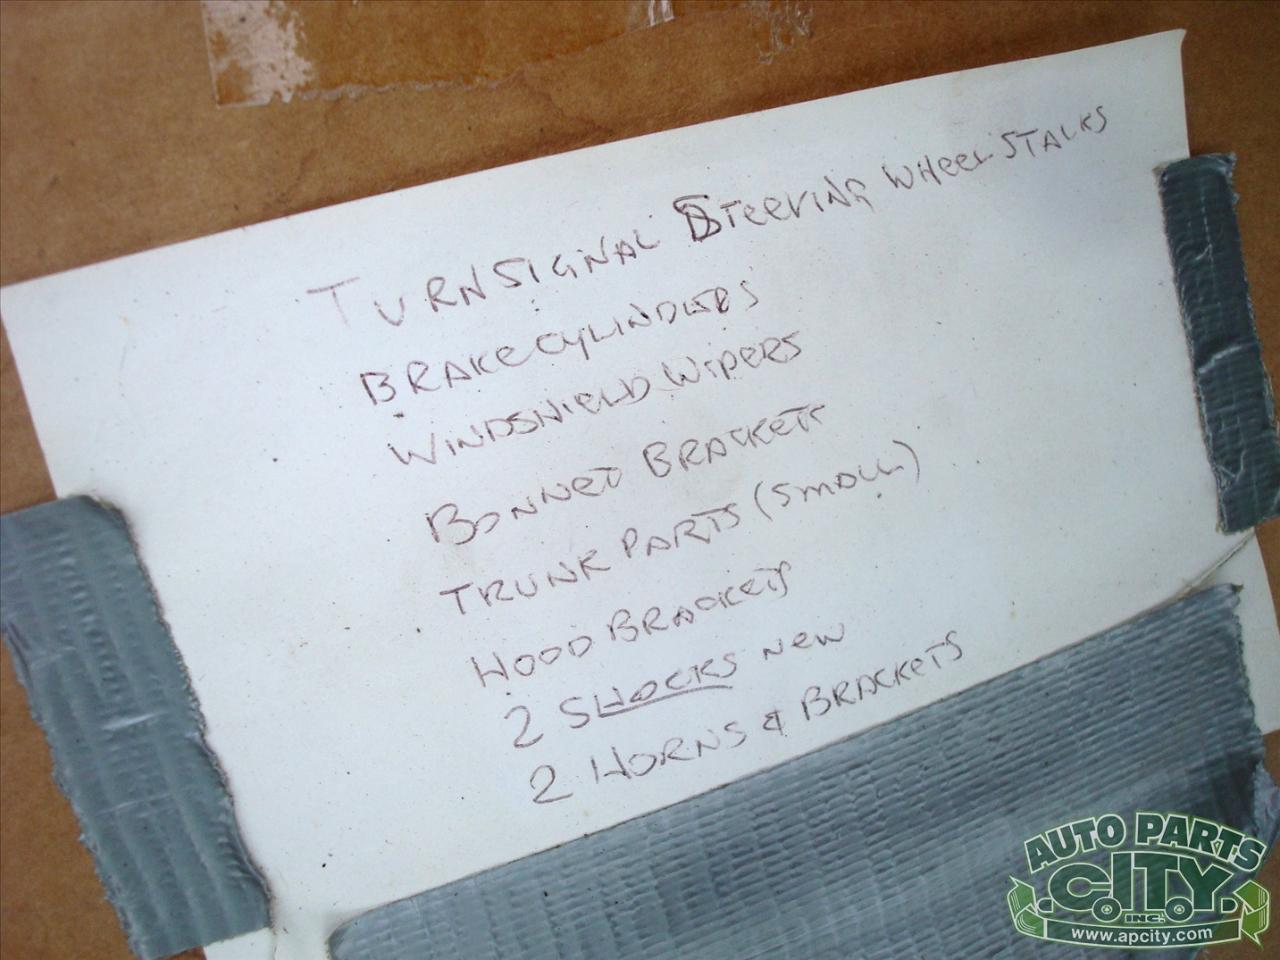 TURNSIGNAL STEERING WHEEL STALKS
BRAKE CYLINDERS
WINDSHIELD WIPERS
BONNET BRACKETS
TRUNK PARTS (SMALL)
HOOD BRACKETS
2 SHOCKS NEW
2 HORNS & BRACKETS
AUTO PARTS
C.I.T.Y.
INC.
www.apcity.com